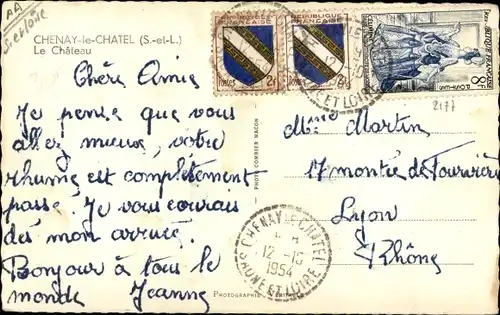 AA
CHENAY-le-CHATEL (S.-et-L.)
Le Château
Chère Amie
Je pense que vous
allez mieux, votre
rhume est complètement
passé. Je vous
dès mon arrivée.
Bonjour à tous le
monde Jeanne
PHOTO COMBIER MACON
RÉPUBLIQUE FRANÇAISE
POSTES 2f
RÉPUBLIQUE FRANÇAISE
2f
8F
2177
Mme Martin
17 montée de Fourvière
Lyon
Rhône
CHENAY-LE-CHATEL
12 -10
1954
SAONE ET LOIRE